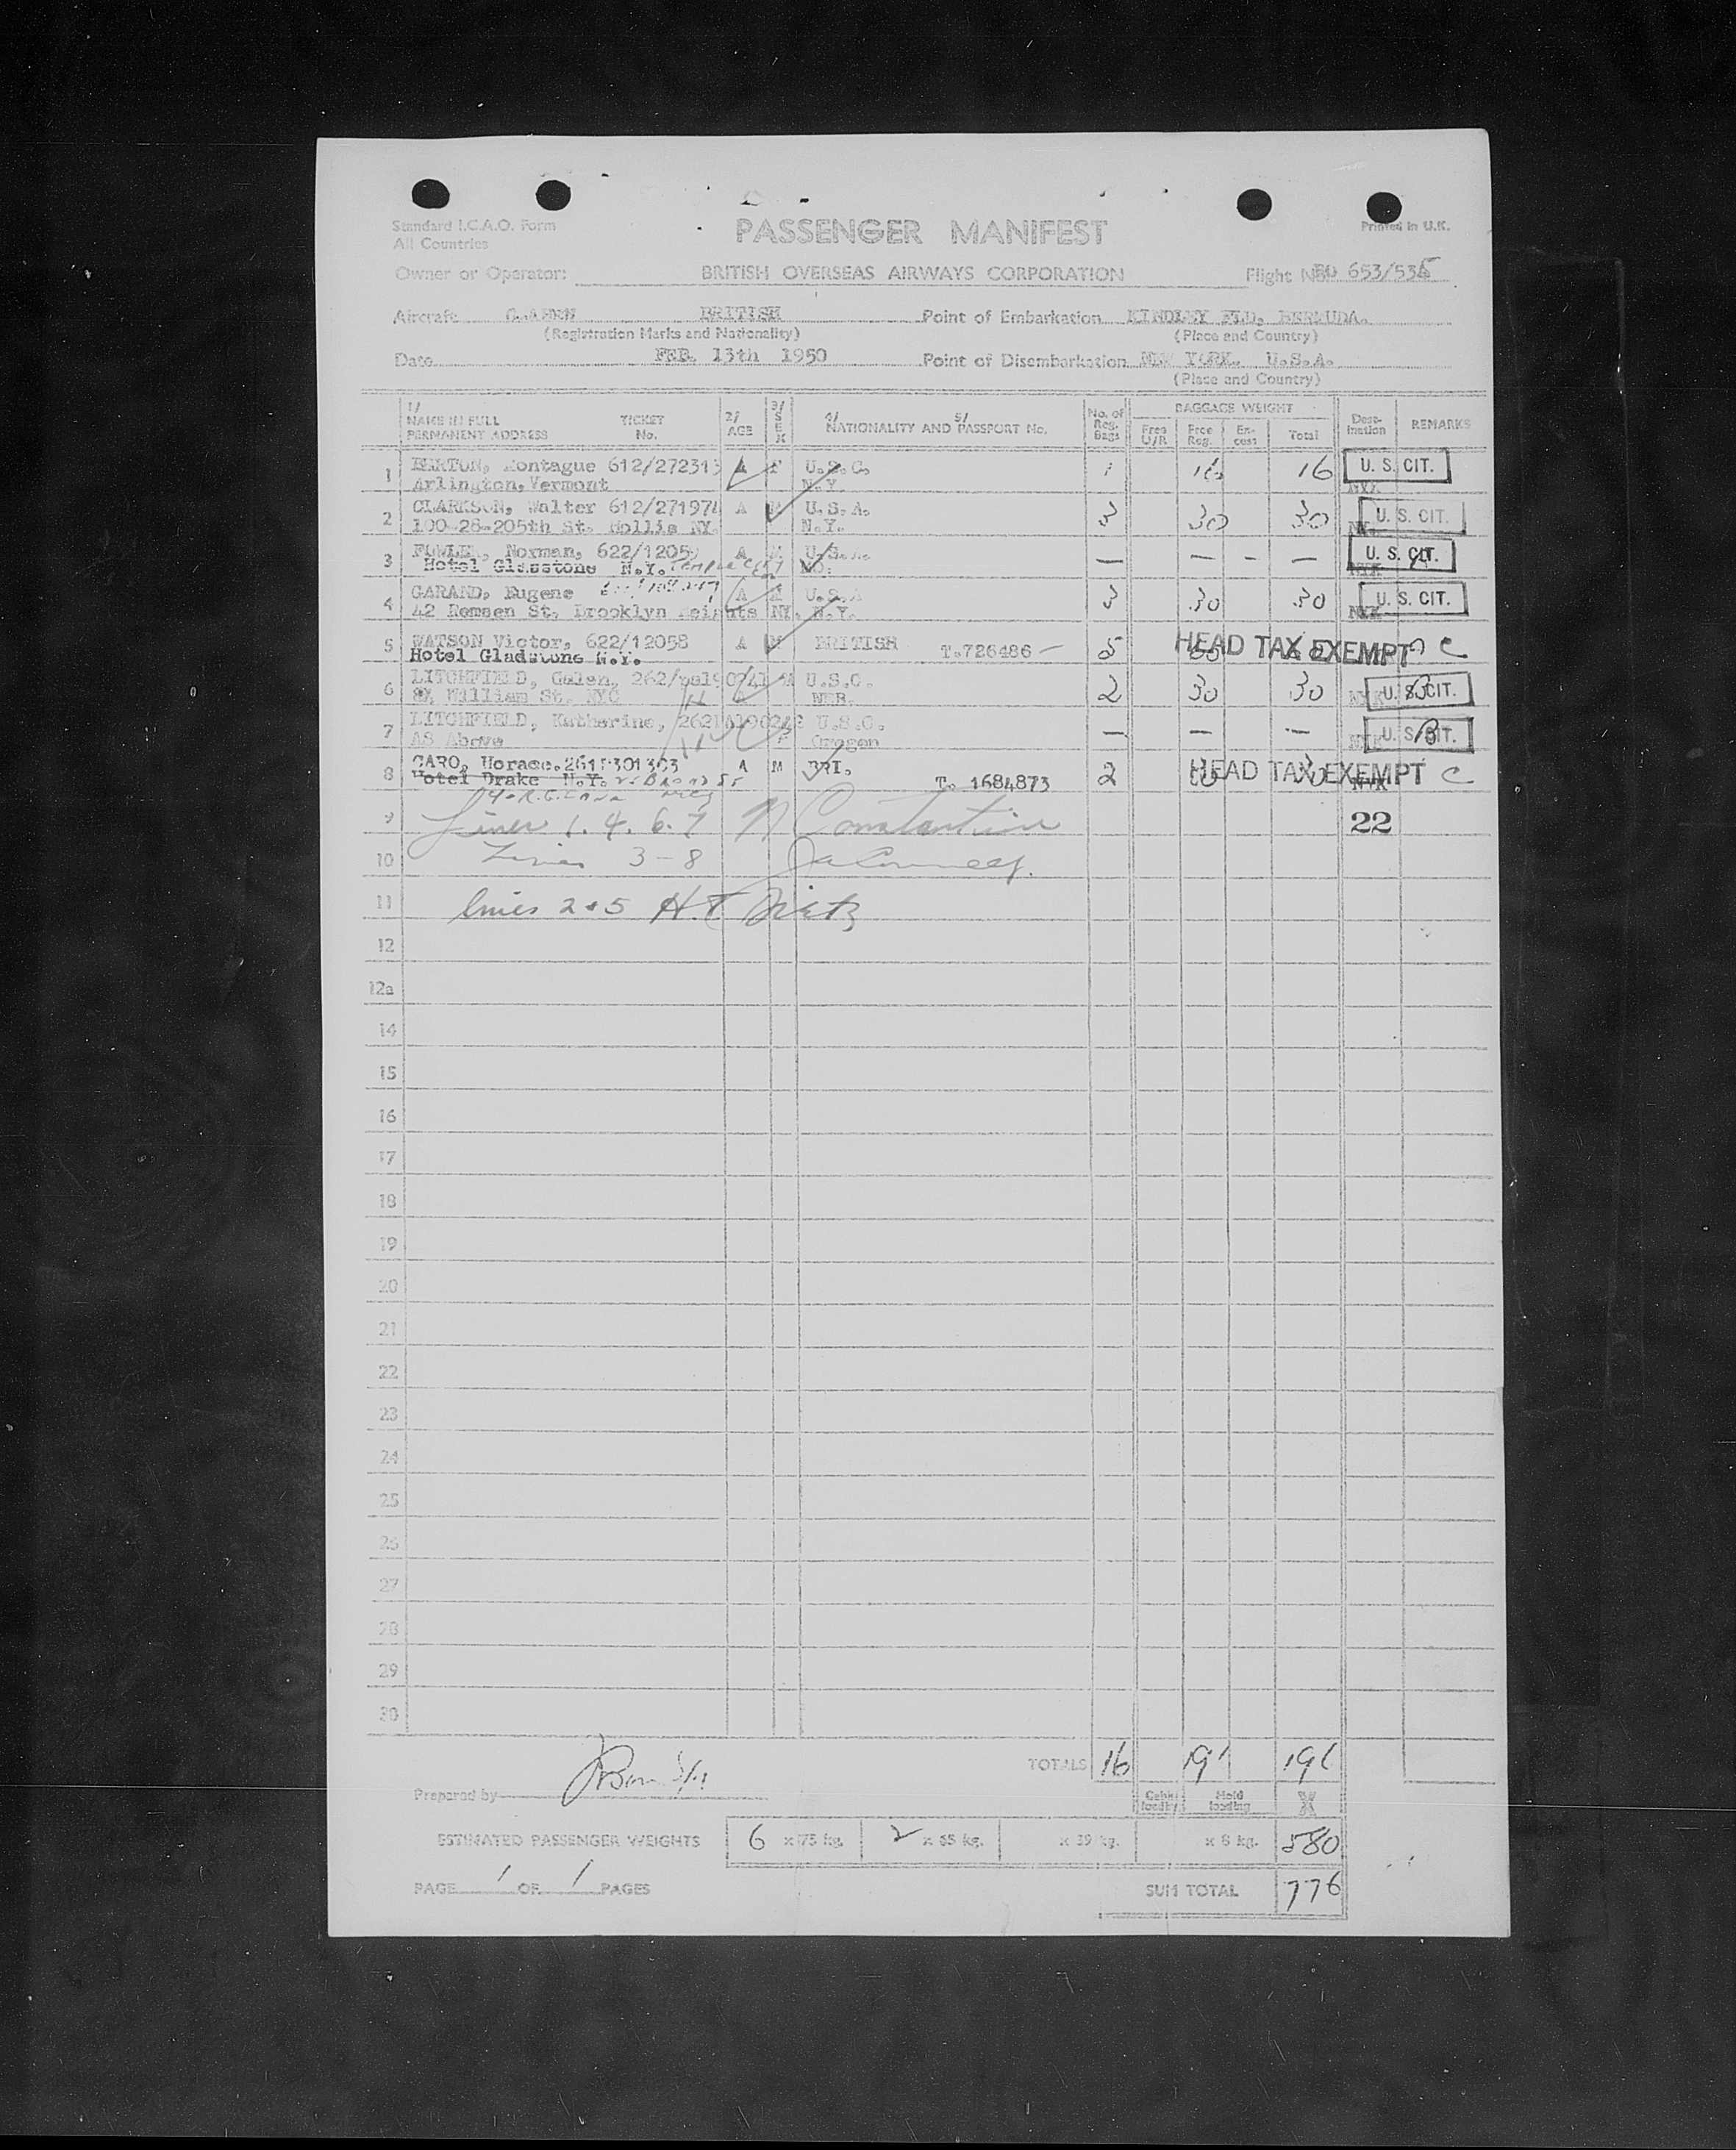 Standard I.C.A.O. Form
All Countries
PASSENGER MANIFEST
Printed in U.K.
Owner or Operator: BRITISH OVERSEAS AIRWAYS CORPORATION Flight No. BO 653/535
Aircraft BRITISH Point of Embarkation KINDLEY FLD, BERMUDA.
(Registration Marks and Nationality) (Place and Country)
Date FEB. 13th 1950 Point of Disembarkation NEW YORK. U.S.A.
(Place and Country)
1/ NAME IN FULL PERMANENT ADDRESS TICKET No. 2/ AGE 3/ SEX 4/ 5/ NATIONALITY AND PASSPORT No. No. of Reg. Bags BAGGAGE WEIGHT Free U/R Free Reg. Ex-cess Total Dest-ination REMARKS
1 BERTON, Montague 612/272313 A U.S.C. 1 16 16 U. S. CIT.
Arlington, Vermont N.Y.
2 CLARKSON, Walter 612/271974 A M U.S.A. 3 30 30 U. S. CIT.
100-28-205th St. Hollis NY. N.Y.
3 FOWLER, Norman, 622/12059 A M U.S.A. — — - — U. S. CIT.
Hotel Gladstone N.Y. MO.
4 GARAND, Eugene A U.S.A 3 30 30 U. S. CIT.
42 Remsen St. Brooklyn Heights NY. N.Y. NYK
5 WATSON Victor, 622/12058 A M BRITISH T.726486 — 5 HEAD TAX EXEMPT C
Hotel Gladstone N.Y.
6 LITCHFIELD, Galen, 262/ M U.S.C. 2 30 30 NYK U. S. CIT.
William St. NYC NEB.
7 LITCHFIELD, Katherine, F U.S.C. — — — NYK U. S. CIT.
AS Above Oregon
8 CARO, Horace. A M BRI. T. 1684873 2 HEAD TAX EXEMPT C
Hotel Drake N.Y. NYK
9 Lines 1. 4. 6. 7 N Constantine 22
10 Lines 3-8
11 lines 2+5 H.T. Dietz
12
12a
14
15
16
17
18
19
20
21
22
23
24
25
26
27
28
29
30
TOTALS 16 191 196
Prepared by
Hold loading
ESTIMATED PASSENGER WEIGHTS 6 x 75 kg. 2 x 65 kg. x 39 kg. x 8 kg. 580
PAGE 1 OF 1 PAGES SUM TOTAL 776